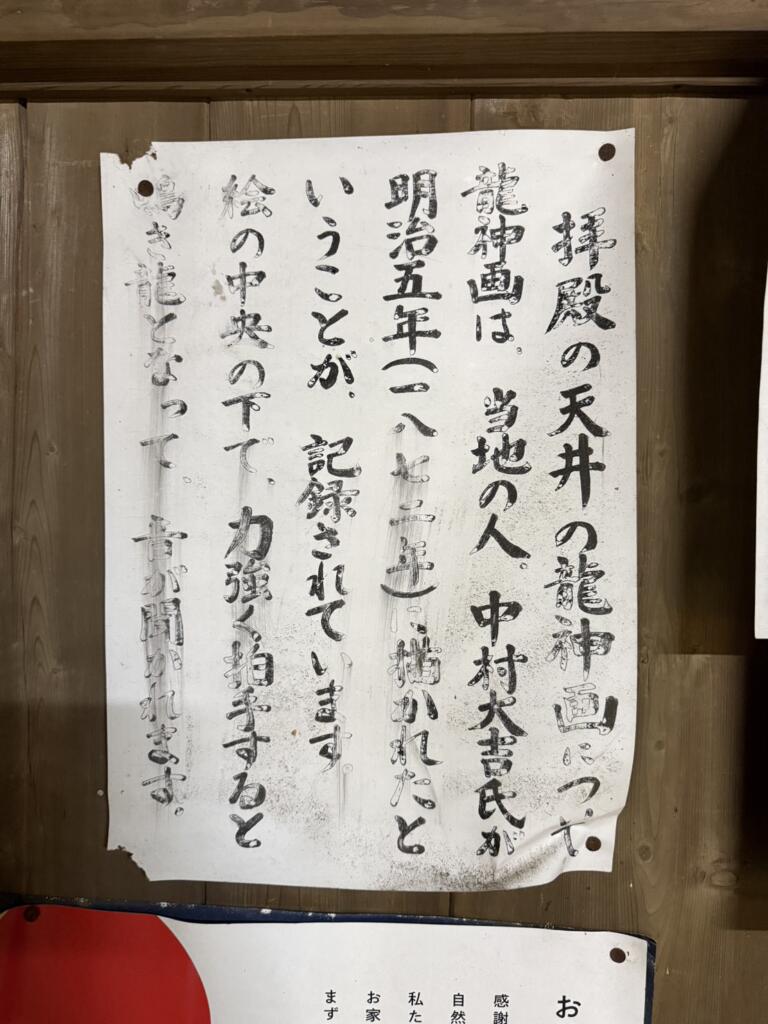 拝殿の天井の龍神画について
龍神画は、当地の人。中村大吉氏が
明治五年(一八七二年)に、描かれたと
いうことが、記録されています
絵の中央の下で、力強く拍手すると
鳴き龍となって、音が聞かれます。
お
感謝
自然
私た
お家
まず